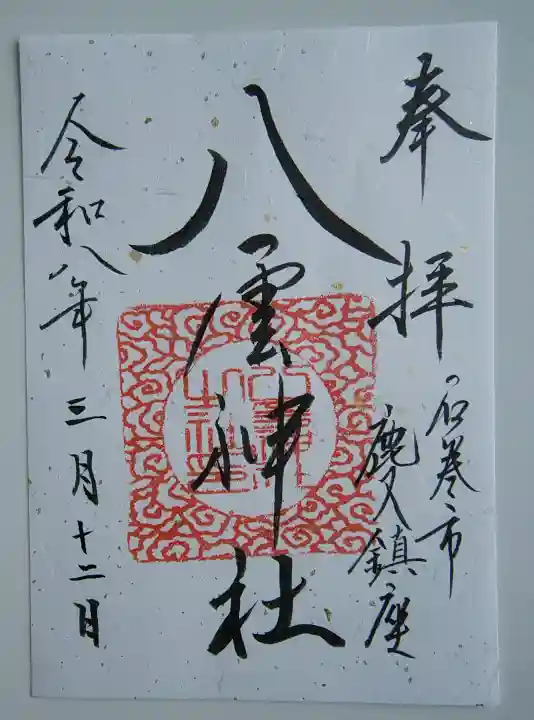 奉拝
石巻市
鹿又鎮座
八雲神社
令和八年三月十二日